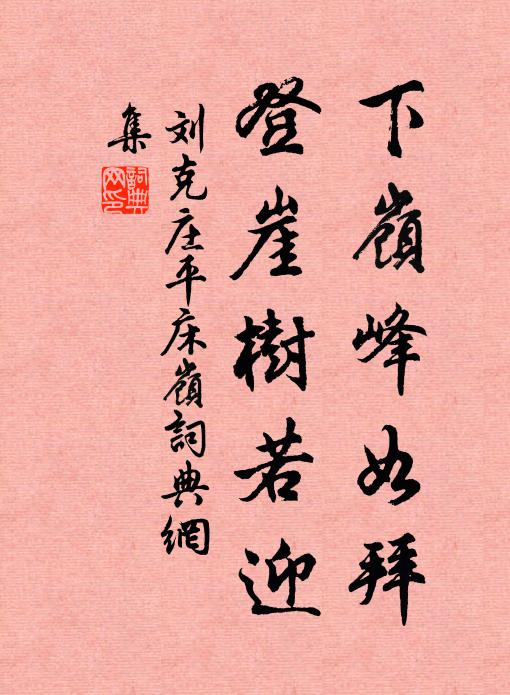 下嶺峰如拜
登崖樹若迎
刘克庄平床嶺詞典網
集
詞典
网印